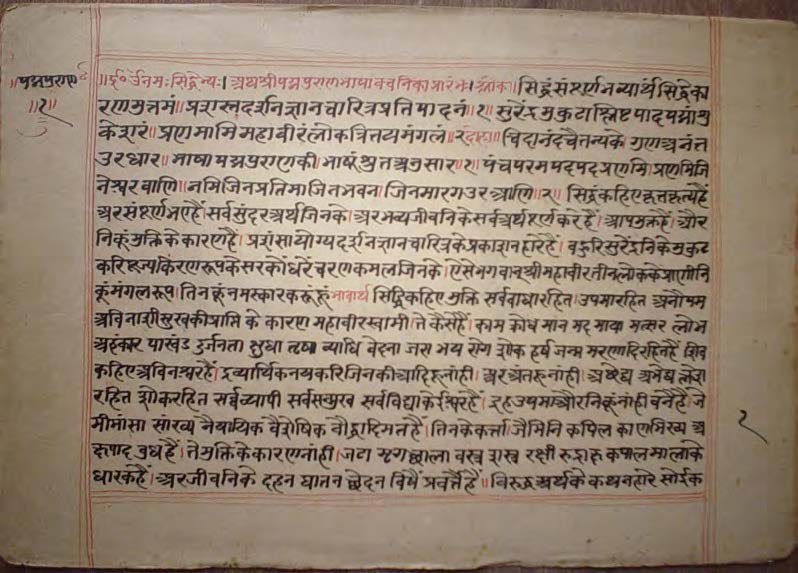 ॥पद्मपुराण
॥१॥
॥ॐ नमः सिद्धेभ्यः। अथ श्री पद्मपुराण भाषा वचनिका प्रारंभः। श्लोक। सिद्धं संपूर्णभव्यार्थं सिद्धेः का
रणमुत्तमं॥ प्रशस्तदर्शनज्ञानचारित्रप्रतिपादनं॥१॥ सुरेंद्रमुकुटाश्लिष्टपादपद्मांशु
केशरं॥ प्रणमामि महावीरं लोकत्रितयमंगलं॥२॥ दोहा॥ चिदानंद चैतन्यके। गुण अनंत
उरधार। भाषा पद्मपुराणकी। भाषूं श्रुत अनुसार॥१॥ पंच परम पद पद प्रणमि। प्रणमि जि
नेश्वर वाणि। नमि जिनप्रतिमा जिनभवन। जिन मारग उर आणि॥२॥ सिद्ध कहिए कृतकृत्य हैं
अर संपूर्ण भए हैं। सर्व सुंदर अर्थ जिनके। अर भव्य जीवनिके सर्व अर्थ पूर्ण करे हैं। आप मुक्त हैं। और
निकूं मुक्तिके कारण हैं। प्रशंसा योग्य दर्शन ज्ञान चारित्रके प्रकाशनहारे हैं। बहुरि सुरेंद्रनिके मुकुट
करि पूज्य किरणरूप केसर को धरें चरणकमल जिनके। ऐसे भगवान् श्री महावीर तीन लोकके प्राणीनि
कूं मंगलरूप। तिनकूं नमस्कार करूं हूं। भावार्थ सिद्धि कहिए मुक्ति सर्व बाधा रहित। उपमा रहित अनौपम
अविनाशी सुखकी प्राप्ति के कारण महावीर स्वामी। ते कैसे हैं। काम क्रोध मान मद माया मत्सर लोभ
अहंकार पाखंड दुर्जनता क्षुधा तृषा व्याधि वेदना जरा भय रोग शोक हर्ष जन्म मरणादि रहित हैं शिव
कहिए अविनश्वर हैं। द्रव्यार्थिकनय करि जिनकी आदि हू नांही। अर अंत हू नांही। अछेद्य अभेद्य क्लेश
रहित शोक रहित सर्वव्यापी सर्वसन्मुख सर्व विद्याके ईश्वर हैं। इह उपमा औरनिकूं नांही बनै हैं। जे
मीमांसा सांख्य नैयायिक वैशेषिक बौद्धादि मत हैं। तिनके कर्त्ता। जैमिनि कपिल काणभिख्य अ
क्षपाद बुध हैं। ते मुक्तिके कारण नांही। जटा मृगछाला वस्त्र शस्त्र स्त्री रुद्राक्ष कपाल मालाके
धारक हैं। अर जीवनिके दहन घातन छेदन विषैं प्रवर्त्तै हैं॥ विरुद्ध अर्थके कथनहारे सोईक
२